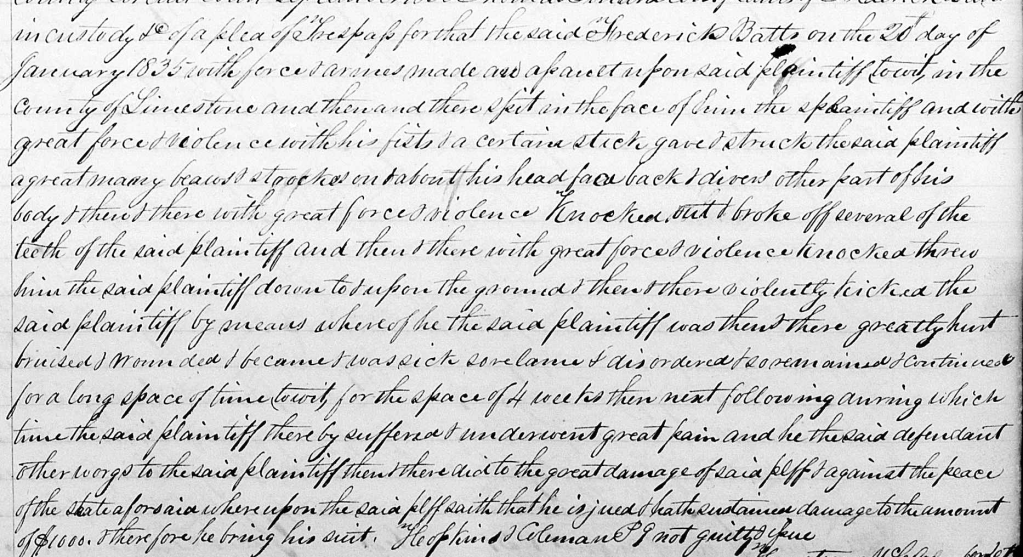 in custody &c of a plea of Trespass for that the said Frederick Batts on the 20th day of
January 1835 with force & armes made an apanet upon said plaintiff towit, in the
county of Limestone and then and there spit in the face of him the splaintiff and with
great force & violence with his fists & a certain stick gave & struck the said plaintiff
a great many beaws & strockes on & about his head face back & divers other part of his
body & then & there with great force & violence Knocked out & broke off several of the
teeth of the said plaintiff and then & there with great force & violence knocked threw
him the said plaintiff down to & upon the ground & then & there violently kicked the
said plaintiff by means whereof he the said plaintiff was then & there greatly hurt
bruised & wounded & became & was sick sore lame & disordered & so remained & continued
for a long space of time (towit, for the space of 4 weeks then next following during which
time the said plaintiff thereby suffered & underwent great pain and he the said defendant
other worgs to the said plaintiff then & there did to the great damage of said plff & against the peace
of the state aforsaid where upon the said plff saith that he is jued & hath sustained damage to the amount
of $1000. & therefore he bring his suit. Hopkins & Coleman P Q not guilty & Issue